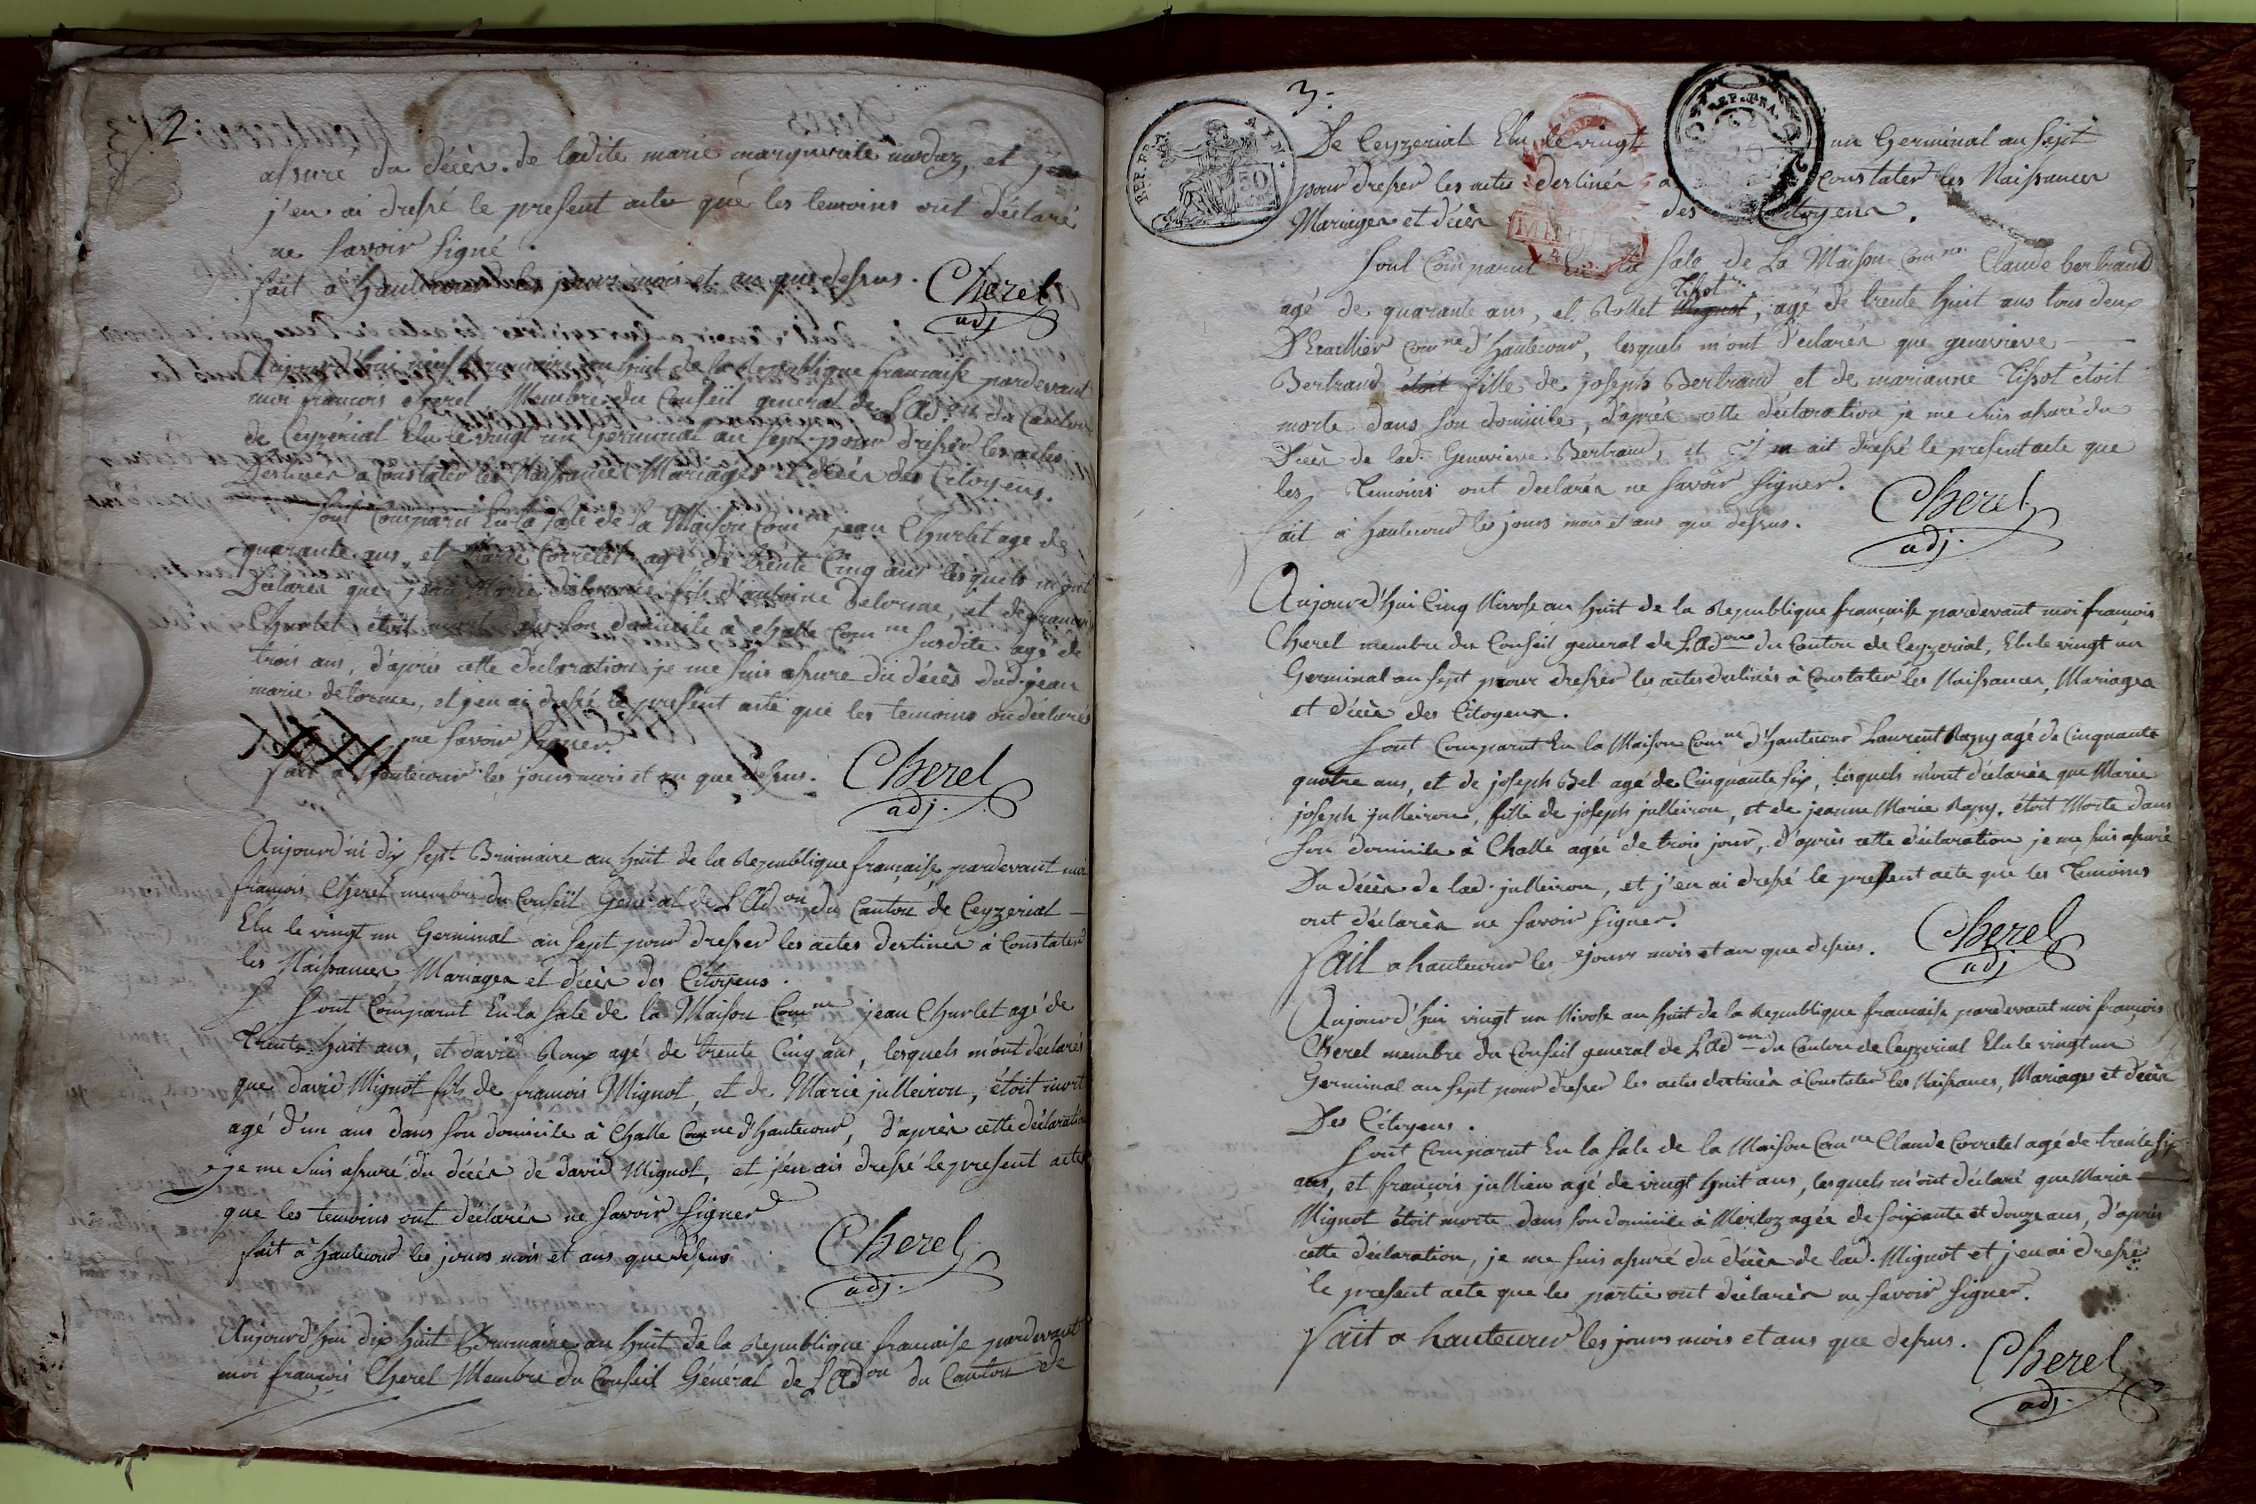 2.
assuré du décès de ladite marie marguerite et
j'en ai dressé le present acte que les temoins ont déclaré
ne savoir signé.
fait à hautecour les jours mois et an que dessus.
Cherel
adj.
Aujourd'hui neuf Brumaire an huit de la Republique francaise pardevant
moi francois Cherel Membre du Conseil general de L'Ad.on du Canton
de Ceyzeriat Elu le vingt un Germinal an sept pour dresser les actes
Destinés a Constater les Naissances Mariages et décès des Citoyens.
Sont Comparu En la sale de la Maison Comne jean Churlet agé de
quarante ans, et Corretel agé de trente Cinq ans lesquels m'ont
Déclarés que jean Marie delorme fils d'antoine Delorme, et de
Churlet étoit mort dans son domicile à Challe Comne susdite agé de
trois ans, d'après cette declaration je me suis assuré du décès dud. jean
marie delorme, et j'en ai dressé le present acte que les temoins on déclarés
ne savoir signer.
fait a hautecour les jours mois et an que dessus.
Cherel
adj.
Aujourd'ui dix sept Brumaire an huit de la Republique française pardevant moi
francois Cherel membre du Conseil General de L'Adon du Canton de Ceyzeriat
Elu le vingt un Germinal an sept pour dresser les actes destinés à Constater
les Naissances, Mariages et décès des Citoyens.
Sont Comparut En la sale de la Maison Comne jean Churlet agé de
Trente huit ans, et david Roux agé de trente Cinq ans, lesquels m'ont déclarés
que david Mignot fils de francois Mignot, et de Marie julleiron, étoit mort
agé d'un ans dans son domicile à Challe Comne d'hautecour, d'après cette déclaration
je me suis assuré du décès de david Mignot, et j'en ais dressé le present acte
que les temoins ont declarés ne savoir signer
fait à hautecour les jours mois et ans que dessus
Cherel
adj.
Aujourd'hui dix huit Brumaire an huit de la Republique francaise pardevant
moi françois Cherel Membre du Conseil Général de L'Adon du Canton de
3.
REP. FRA.
50
REP. FRA.
De Ceyzeriat Elu le vingt un Germinal an sept
pour dresser les actes destinés a Constater les Naissances
Mariages et décès des Citoyens.
Sont Comparut En la sale de La Maison Comne Claude bertrand
Tissot
agé de quarante ans, et Rollet Mignot, agé de trente huit ans tous deux
Comne d'hautecour, lesquels m'ont déclarés que genevieve
Bertrand étoit fille de joseph Bertrand et de marianne Tissot étoit
morte dans son domicile, d'après cette déclaration je me suis assuré du
Décès de lad. Genevieve Bertrand, et J'en ait dressé le present acte que
les Temoins ont declarés ne savoir signer.
fait à hautecour les jours mois et ans que dessus.
Cherel
adj.
Aujourd'hui Cinq Nivose an huit de la Republique française pardevant moi françois
Cherel membre du Conseil general de L'Adon du Canton de Ceyzeriat, Elu le vingt un
Germinal an sept pour dresser les actes destinés à Constater les Naissances, Mariages
et décès des Citoyens.
Sont Comparut En la Maison Comne d'hautecour Laurent Rapy agé de Cinquante
quatre ans, et de joseph Bel agé de Cinquante six, lesquels m'ont déclarés que Marie
joseph julleiron, fille de joseph julleiron, et de jeanne Marie Rapy, étoit Morte dans
son domicile à Challe agée de trois jour, d'après cette déclaration je me suis assuré
Du décès de lad. julleiron, et j'en ai dressé le present acte que les Temoins
ont déclarés ne savoir signer.
fait a hautecour les jours mois et an que dessus.
Cherel
adj
Aujourd'hui vingt un Nivose an huit de la Republique francaise pardevant moi françois
Cherel membre du Conseil general de L'Adon du Canton de Ceyzeriat Elu le vingt un
Germinal an sept pour dresser les actes destinés à Constater les Naissances, Mariages et décès
Des Citoyens.
Sont Comparut En la sale de la Maison Comne Claude Corretel agé de trente six
ans, et françois jullien agé de vingt huit ans, lesquels m'ont déclaré que Marie
Mignot étoit morte dans son domicile à Merloz agée de soixante et douze ans, d'après
cette déclaration, je me suis assuré du décès de lad. Mignot et j'en ai dressé
le present acte que les partie ont déclarés ne savoir signer.
fait a hautecour les jours mois et ans que dessus.
Cherel
adj.